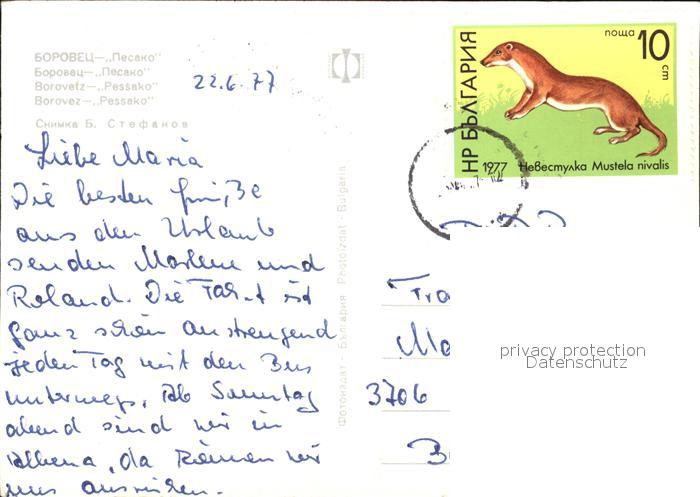 БОРОВЕЦ—„Песако"
Боровец—„Песако"
Borovetz—„Pessako"
Borovez—„Pessako"
Снимка Б. Стефанов
22.6.77
Liebe Maria
Die besten Grüße
aus dem Urlaub
senden Marlene und
Roland. Die Fahrt ist
ganz schön anstrengend
jeden Tag mit dem Bus
unterwegs. Ab Sonntag
abend sind wir in
Albena, da können wir
uns ausruhen.
Фотоиздат · България Photoizdat · Bulgaria
НР БЪЛГАРИЯ
поща 10 cm
1977 Невестулка Mustela nivalis
Fra
Ma
3706
B
privacy protection
Datenschutz